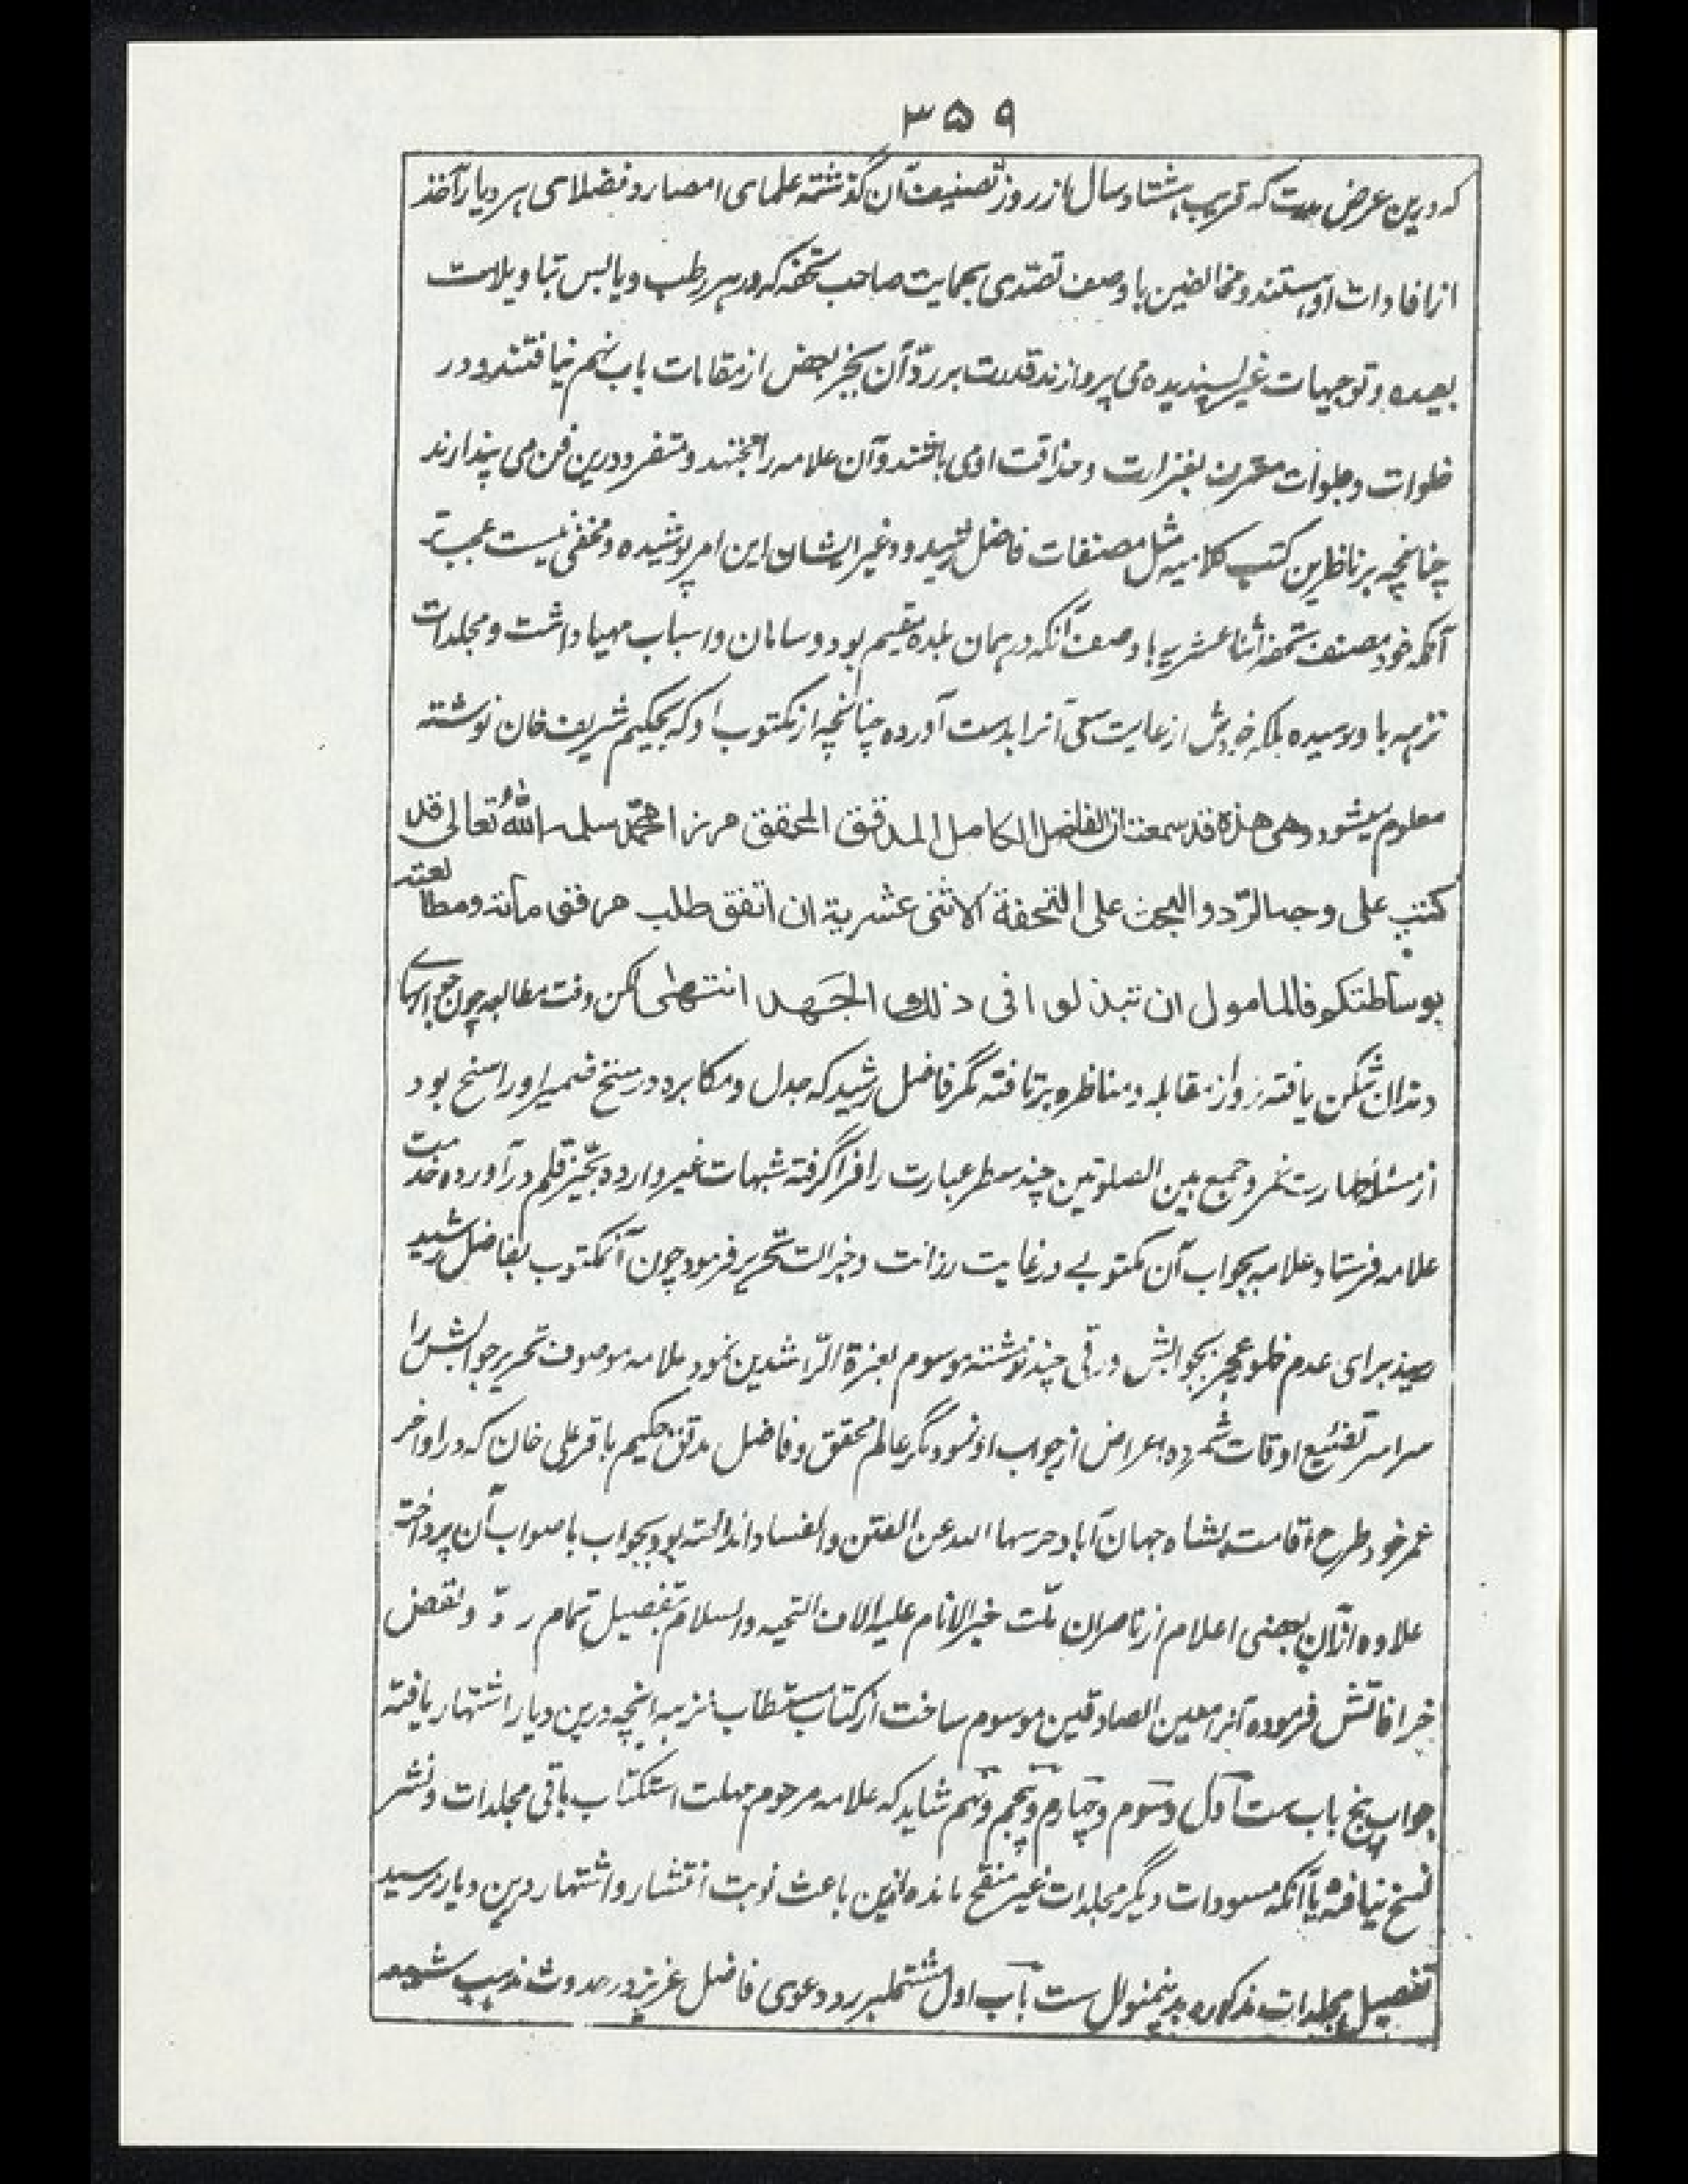 ۳۵۹
که درین عرض مدت که قریب هشتاد سال از روز تصنیف آن گذشته علمای امصار و فضلای هر دیار آخذ
از افادات او هستند و مخالفین با وصف تصدّی بحمایت صاحب تحفه که در هر رطب و یابس بتاویلات
بعیده و توجیهات غیر پسندیده می پردازند قدرت بر ردّ آن بجز بعض از مقامات باب نهم نیافتند و در
خلوات و جلوات معترف بغزارت و حذاقت او می باشند و آن علامه را مجتهد و متفرد درین فن می پندارند
چنانچه بر ناظرین کتب کلامیه مثل مصنفات فاضل رشید و غیر ایشان این امر پوشیده و مخفی نیست عجب تر
آنکه خود مصنف تحفه اثنا عشریه با وصف آنکه در همان بلده مقیم بود و سامان و اسباب مهیا داشت و مجلدات
نزهه باو رسیده بلکه خودش از غایت سعی آنرا بدست آورده چنانچه از مکتوب او که بحکیم شریف خان نوشته
معلوم میشود وهی هذه قد سمعت ان الفاضل الکامل المدقق المحقق مرزا محمّد سلمه اللّه تعالی قد
کتب علی وجه الرّد والبحث علی التحفة الاثنی عشریة ان اتفق طلب مرافق مأته ومطالعته
بوساطتکم فالمامول ان تبذلوا فی ذلک الجَهد انتهی لکن وقت مطالعه چون جوابهای
دندان شکن یافته رو از مقابله و مناظره برتافته مگر فاضل رشید که جدل و مکابره در سنخ ضمیر او راسخ بود
از مسئله طهارت خمر و جمع بین الصلوتین چند سطر عبارت را فرا گرفته شبهات غیر وارد و بحیّز قلم در آورده خدمت
علامه فرستاد علامه بجواب آن مکتوبے در غایت رزانت و جزالت تحریر فرمود چون آنمکتوب بفاضل رشید
رسید برای عدم خلو عجز بجوابش ورقی چند نوشته موسوم بعزة الرّاشدین نمود علامه موصوف تحریر جوابش را
سراسر تضئیع اوقات شمرده اعراض از جواب او نمود مگر عالم محقق و فاضل مدقق حکیم باقر علی خان که در اواخر
عمر خود طرح اقامت بشاه جهان آباد حرسها الله عن الفتن والفساد انداخته بود بجواب با صواب آن پرداخته
علاوه ازآن بعضی اعلام از ناصران ملّت خیر الانام علیه الاف التحیه والسلام بتفصیل تمام ردّ و نقض
خرافاتش فرموده آنرا معین الصادقین موسوم ساخت از کتاب مستطاب نزهه آنچه درین دیار اشتهار یافته
جواب پنج باب ست اول و سوم و چهارم و پنجم و نهم شاید که علامه مرحوم مهلت استکتاب باقی مجلدات و نشر
نسخ نیافته یا آنکه مسودات دیگر مجلدات غیر منقح مانده ازین باعث نوبت انتشار و اشتهار درین دیار نرسید
تفصیل مجلدات مذکوره بدینمنوال ست باب اول مشتملبر رد دعوی فاضل عزیز در حدوث مذهب شیعه